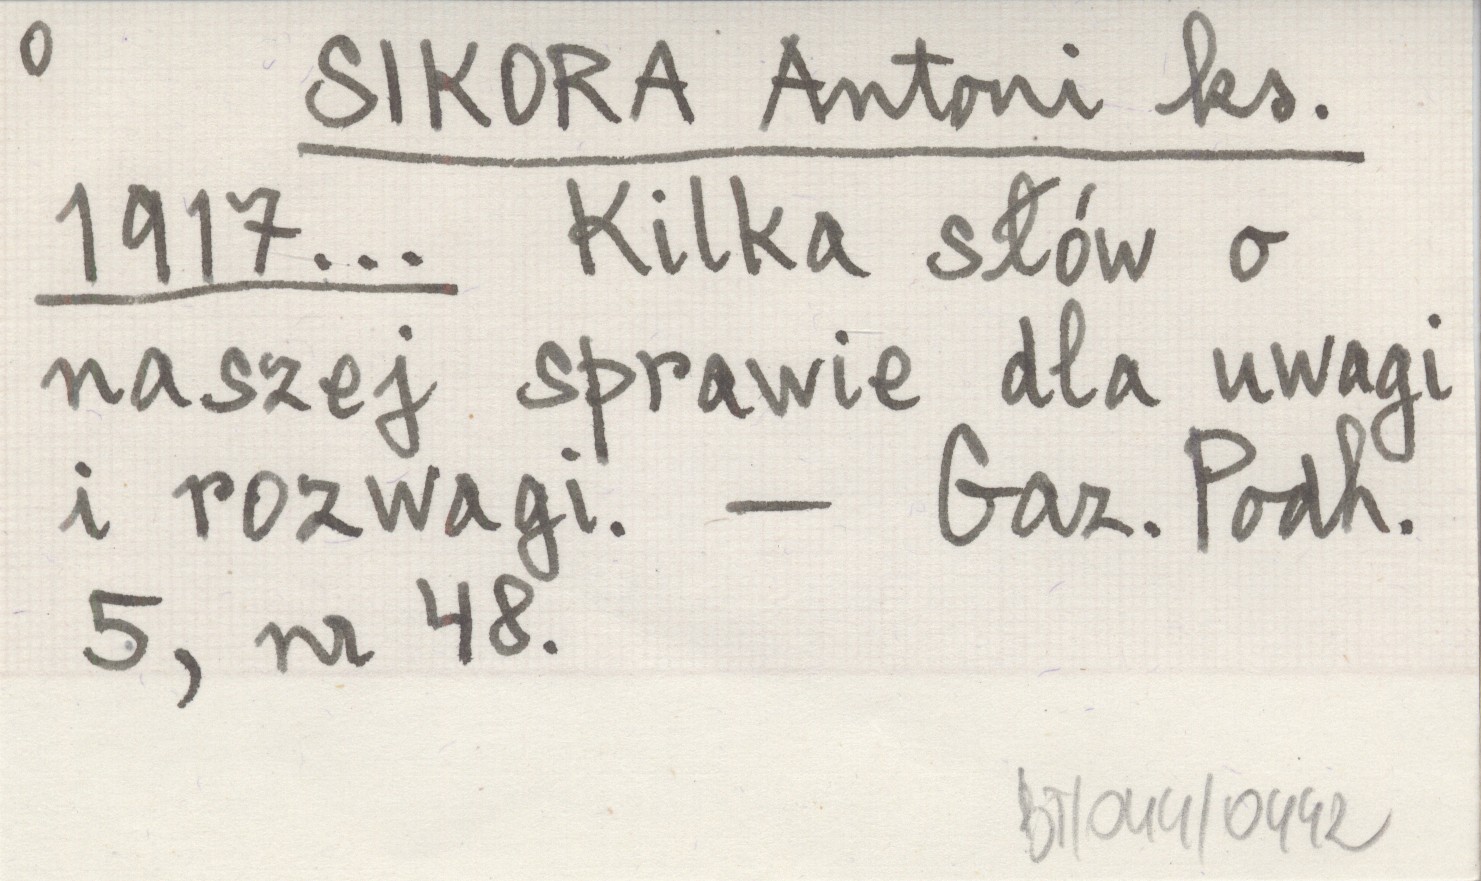 0 SIKORA Antoni ks.
1917... Kilka słów o
naszej sprawie dla uwagi
i rozwagi. — Gaz. Podh.
5, nr 48.
BT/044/0442